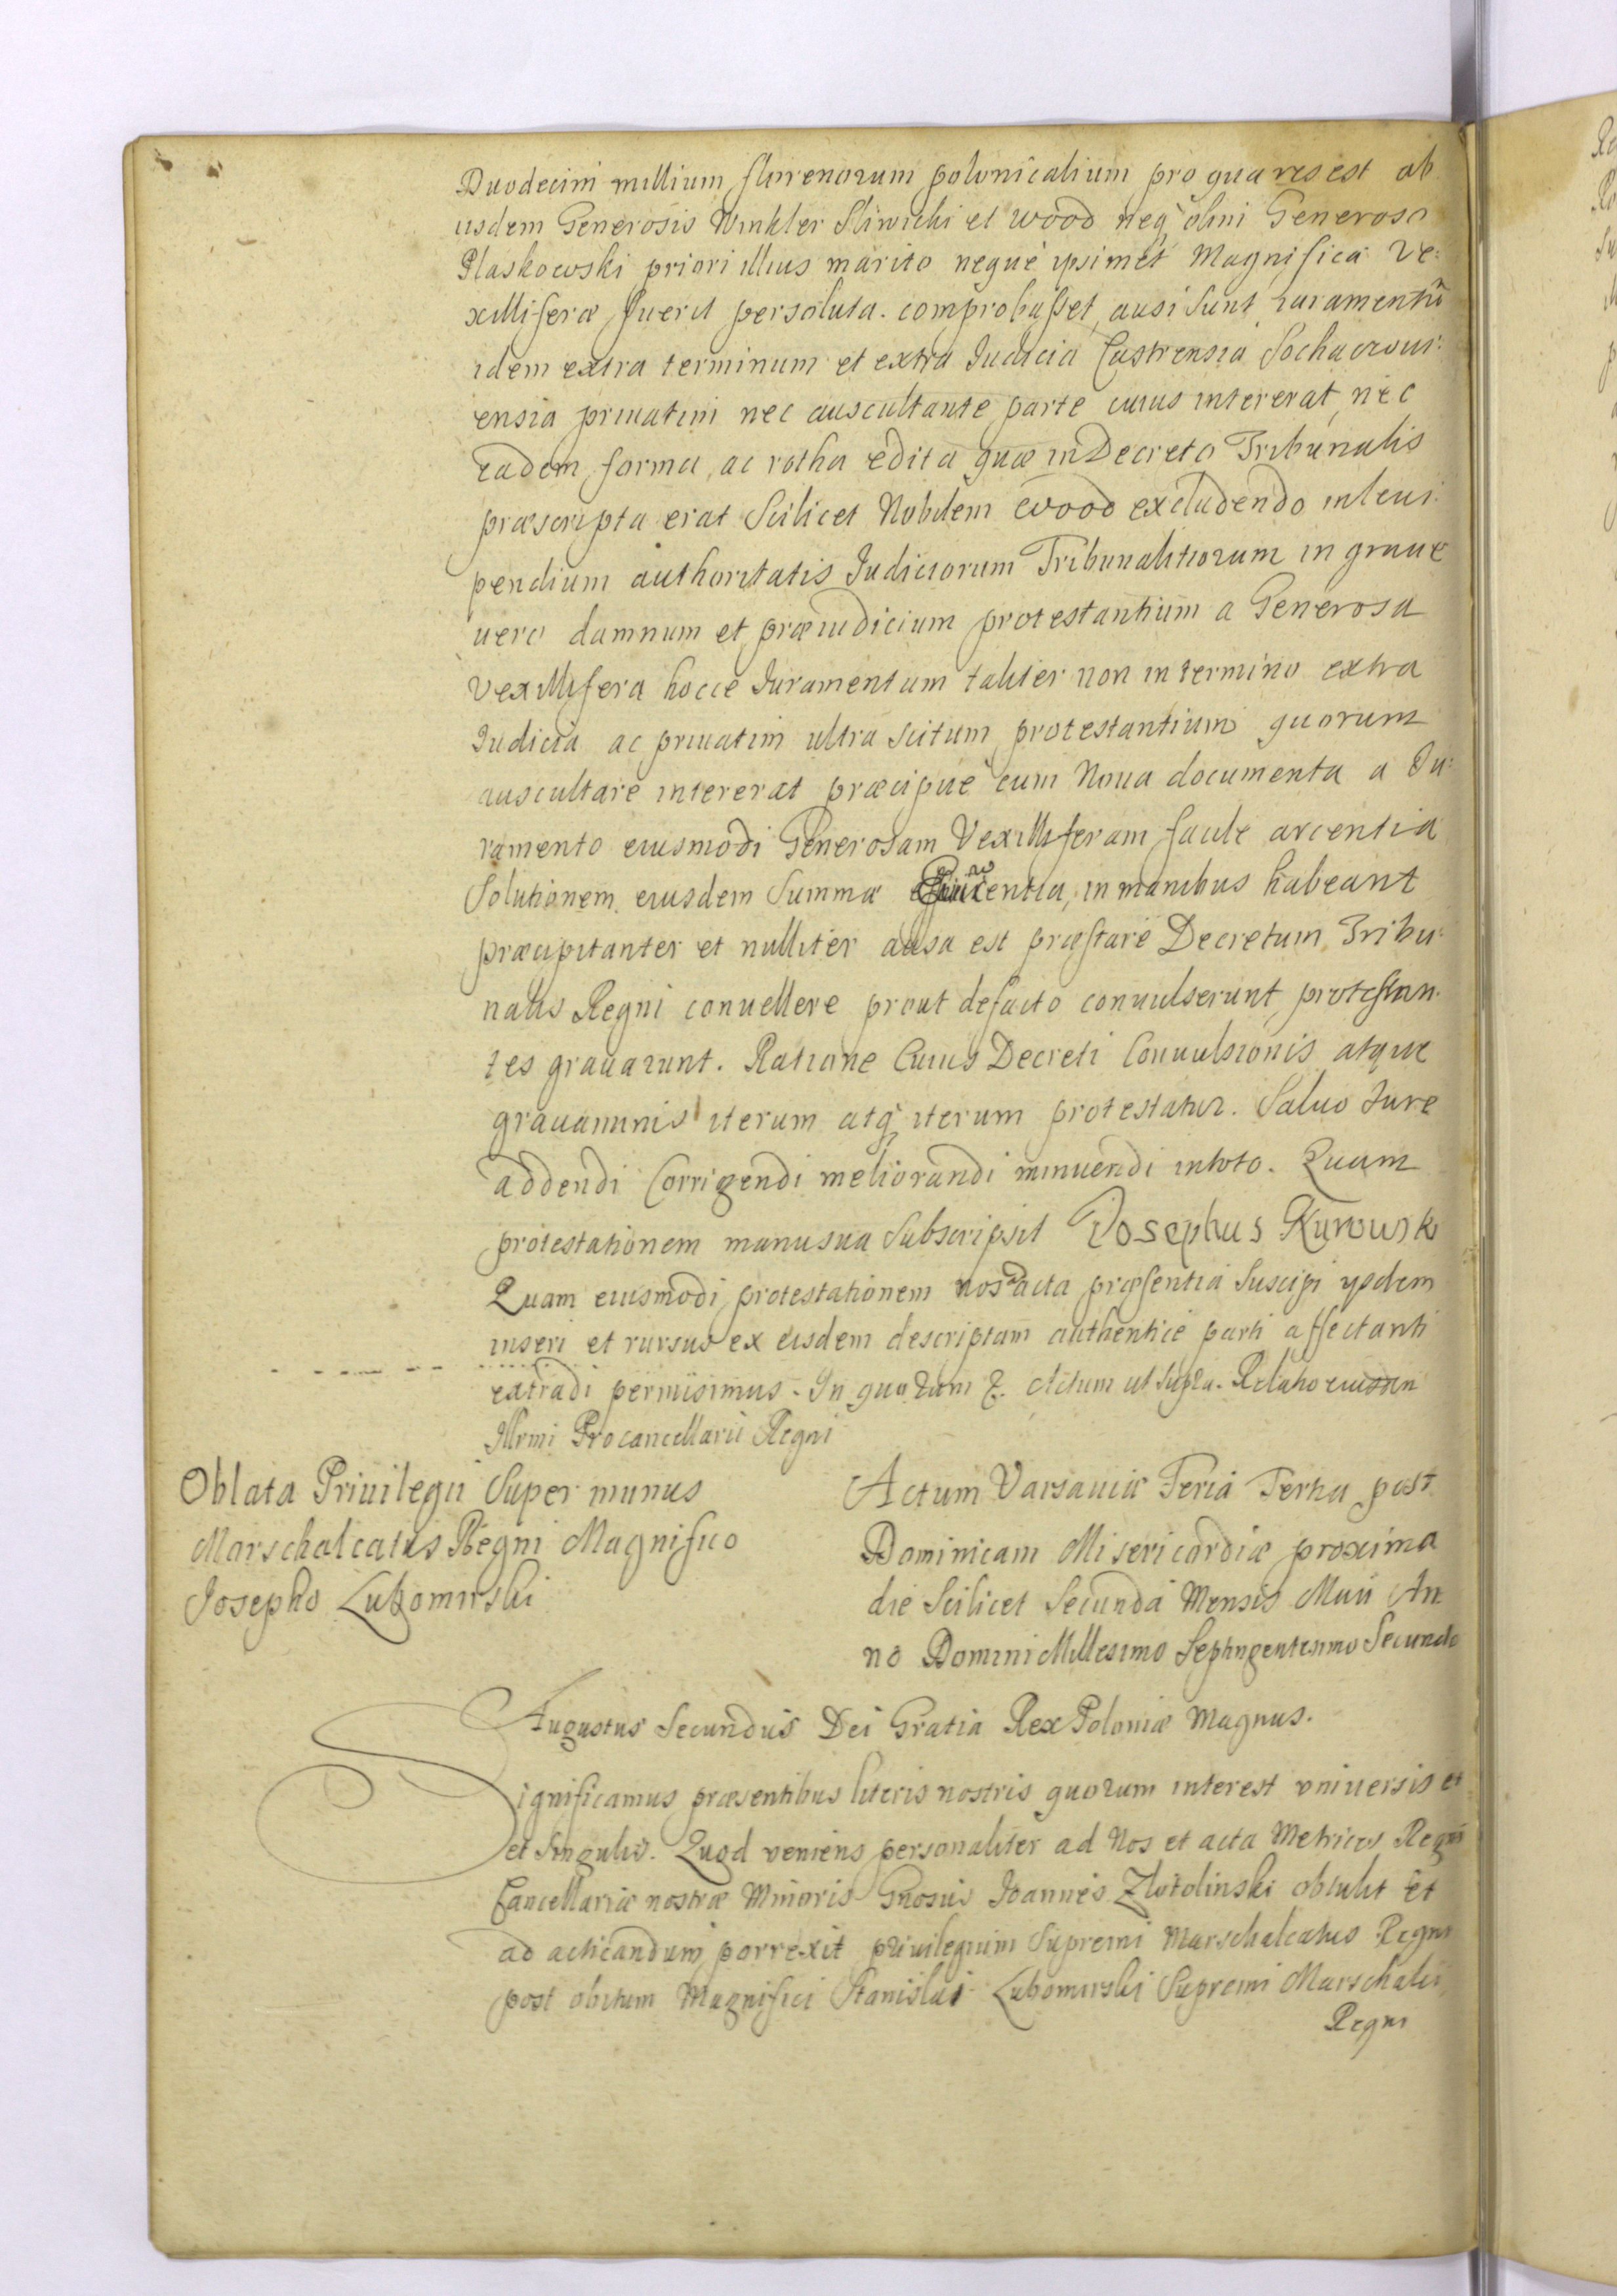 Duodecim millium florenorum polonicalium pro qua res est ab
iisdem Generosis Winkler Sliwicki et Wood neq; olim Generoso
Plaskowski priori illius marito neque ipsimet Magnificæ Ve:
xilliferæ fuerit persoluta. comprobasset, ausi sunt iuramentũ
idem extra terminum et extra Iudicia Castrensia Sochacvoui:
ensia priuatim nec auscultante parte cuius intererat, nec
eadem forma, ac rotha edita quæ in Decreto Tribunalis
præscripta erat Scilicet Nobilem Wood excludendo in leui
pendium authoritatis Iudiciorum Tribunalitiorum in graue
uero damnum et præiudicium protestantium a Generosa
Vexillifera hocce Iuramentum taliter non in termino extra
Iudicia ac priuatim ultra scitum protestantium quorum
auscultare intererat præcipue cum Noua documenta a Iu:
ramento eiusmodi Generosam Vexilliferam facile arcentia
Solutionem eiusdem Summæ in manibus habeant
præcipitanter et nulliter ausa est præstare Decretum Tribu:
nalis Regni conuellere prout defacto conuulserunt, protestan:
tes grauarunt. Ratione Cuius Decreti Conuulsionis atque
grauaminis iterum atq; iterum protestatur. Saluo Iure
addendi Corrigendi meliorandi minuendi in toto. Quam
protestationem manu sua Subscripsit Josephus Kurowski
Quam eiusmodi protestationem nos ad acta præsentia Suscipi ysdem
inseri et rursus ex eisdem descriptam authentice parti affectanti
extradi permisimus. In quorum &. Actum ut supra. Relatio eiusdem
Illrmi Procancellarii Regni
Oblata Priuilegii Super munus
Marschalcatus Regni Magnifico
Josepho Lubomirski
Actum Varsauiæ Feria Tertia post
Dominicam Misericordiæ proxima
die Scilicet Secunda Mensis Maii An
no Domini Millesimo Septingentesimo Secundo
Augustus Secundus Dei Gratia Rex Poloniæ Magnus.
Significamus præsentibus literis nostris quorum interest vniuersis et
et singulis. Quod veniens personaliter ad Nos et acta Metrices Regni
Cancellariæ nostræ Minoris Gnosus Ioannes Zlotolinski obtulit et
ad acticandum porrexit priuilegium Supremi Marschalcatus Regni
post obitum Magnifici Stanislai Lubomirski Supremi Marschalci
Regni